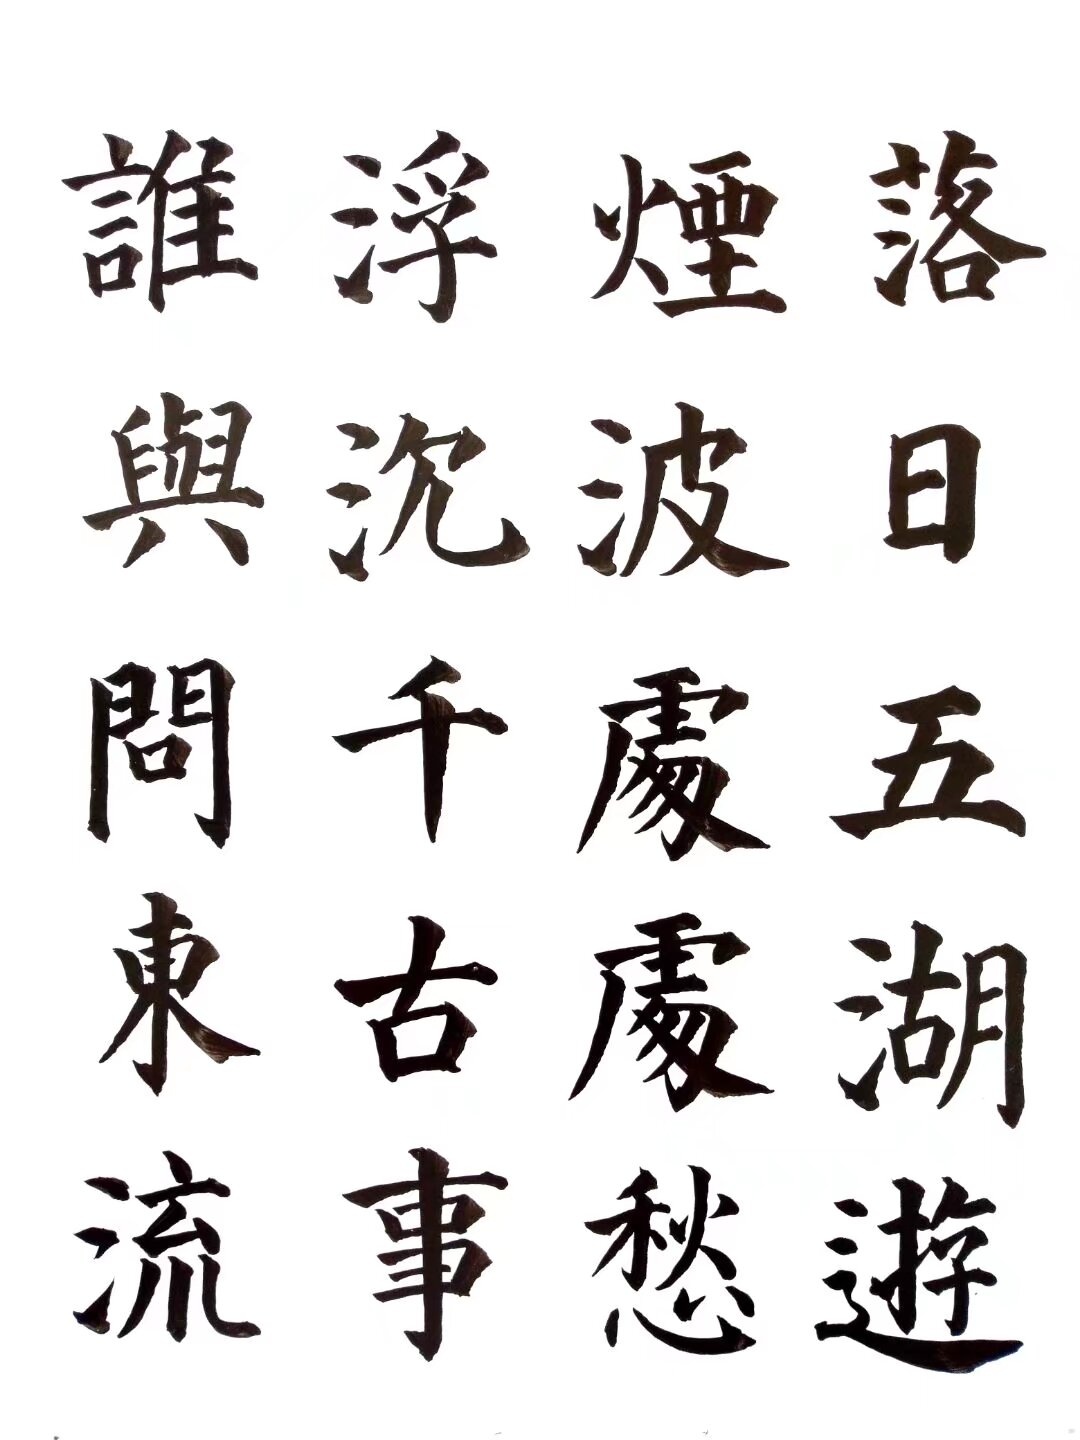 落日五湖遊
煙波處處愁
浮沉千古事
誰與問東流